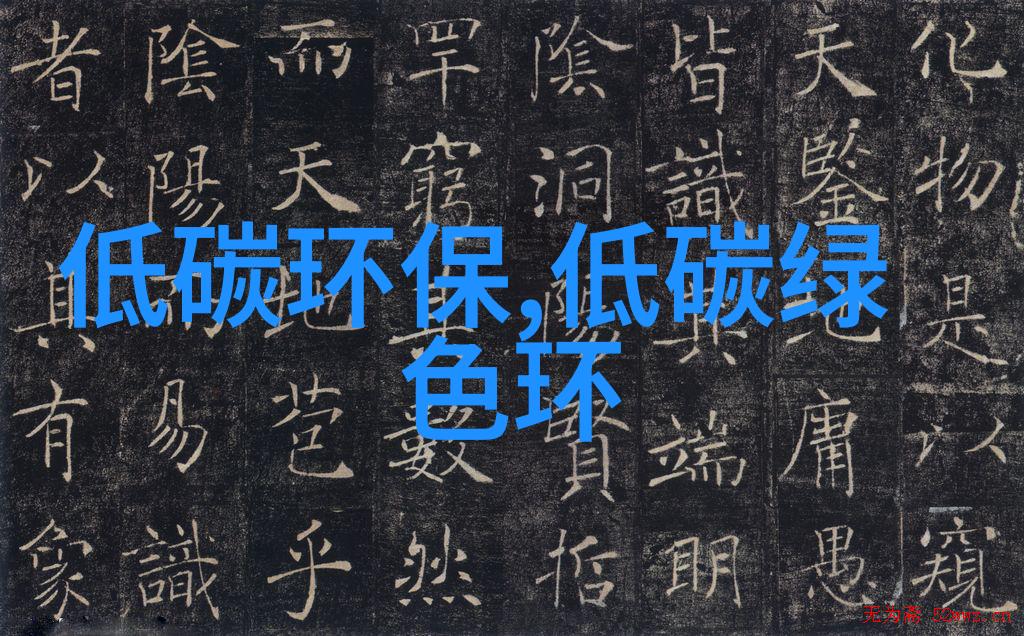 低碳环保,低碳绿
色环
化物是以窺
天鑒地庸愚
皆識其端明
陰洞陽賢哲
罕窮其數然
而天地苞乎
陰陽而易識
者以其有象
无为斋 52wwz.cn